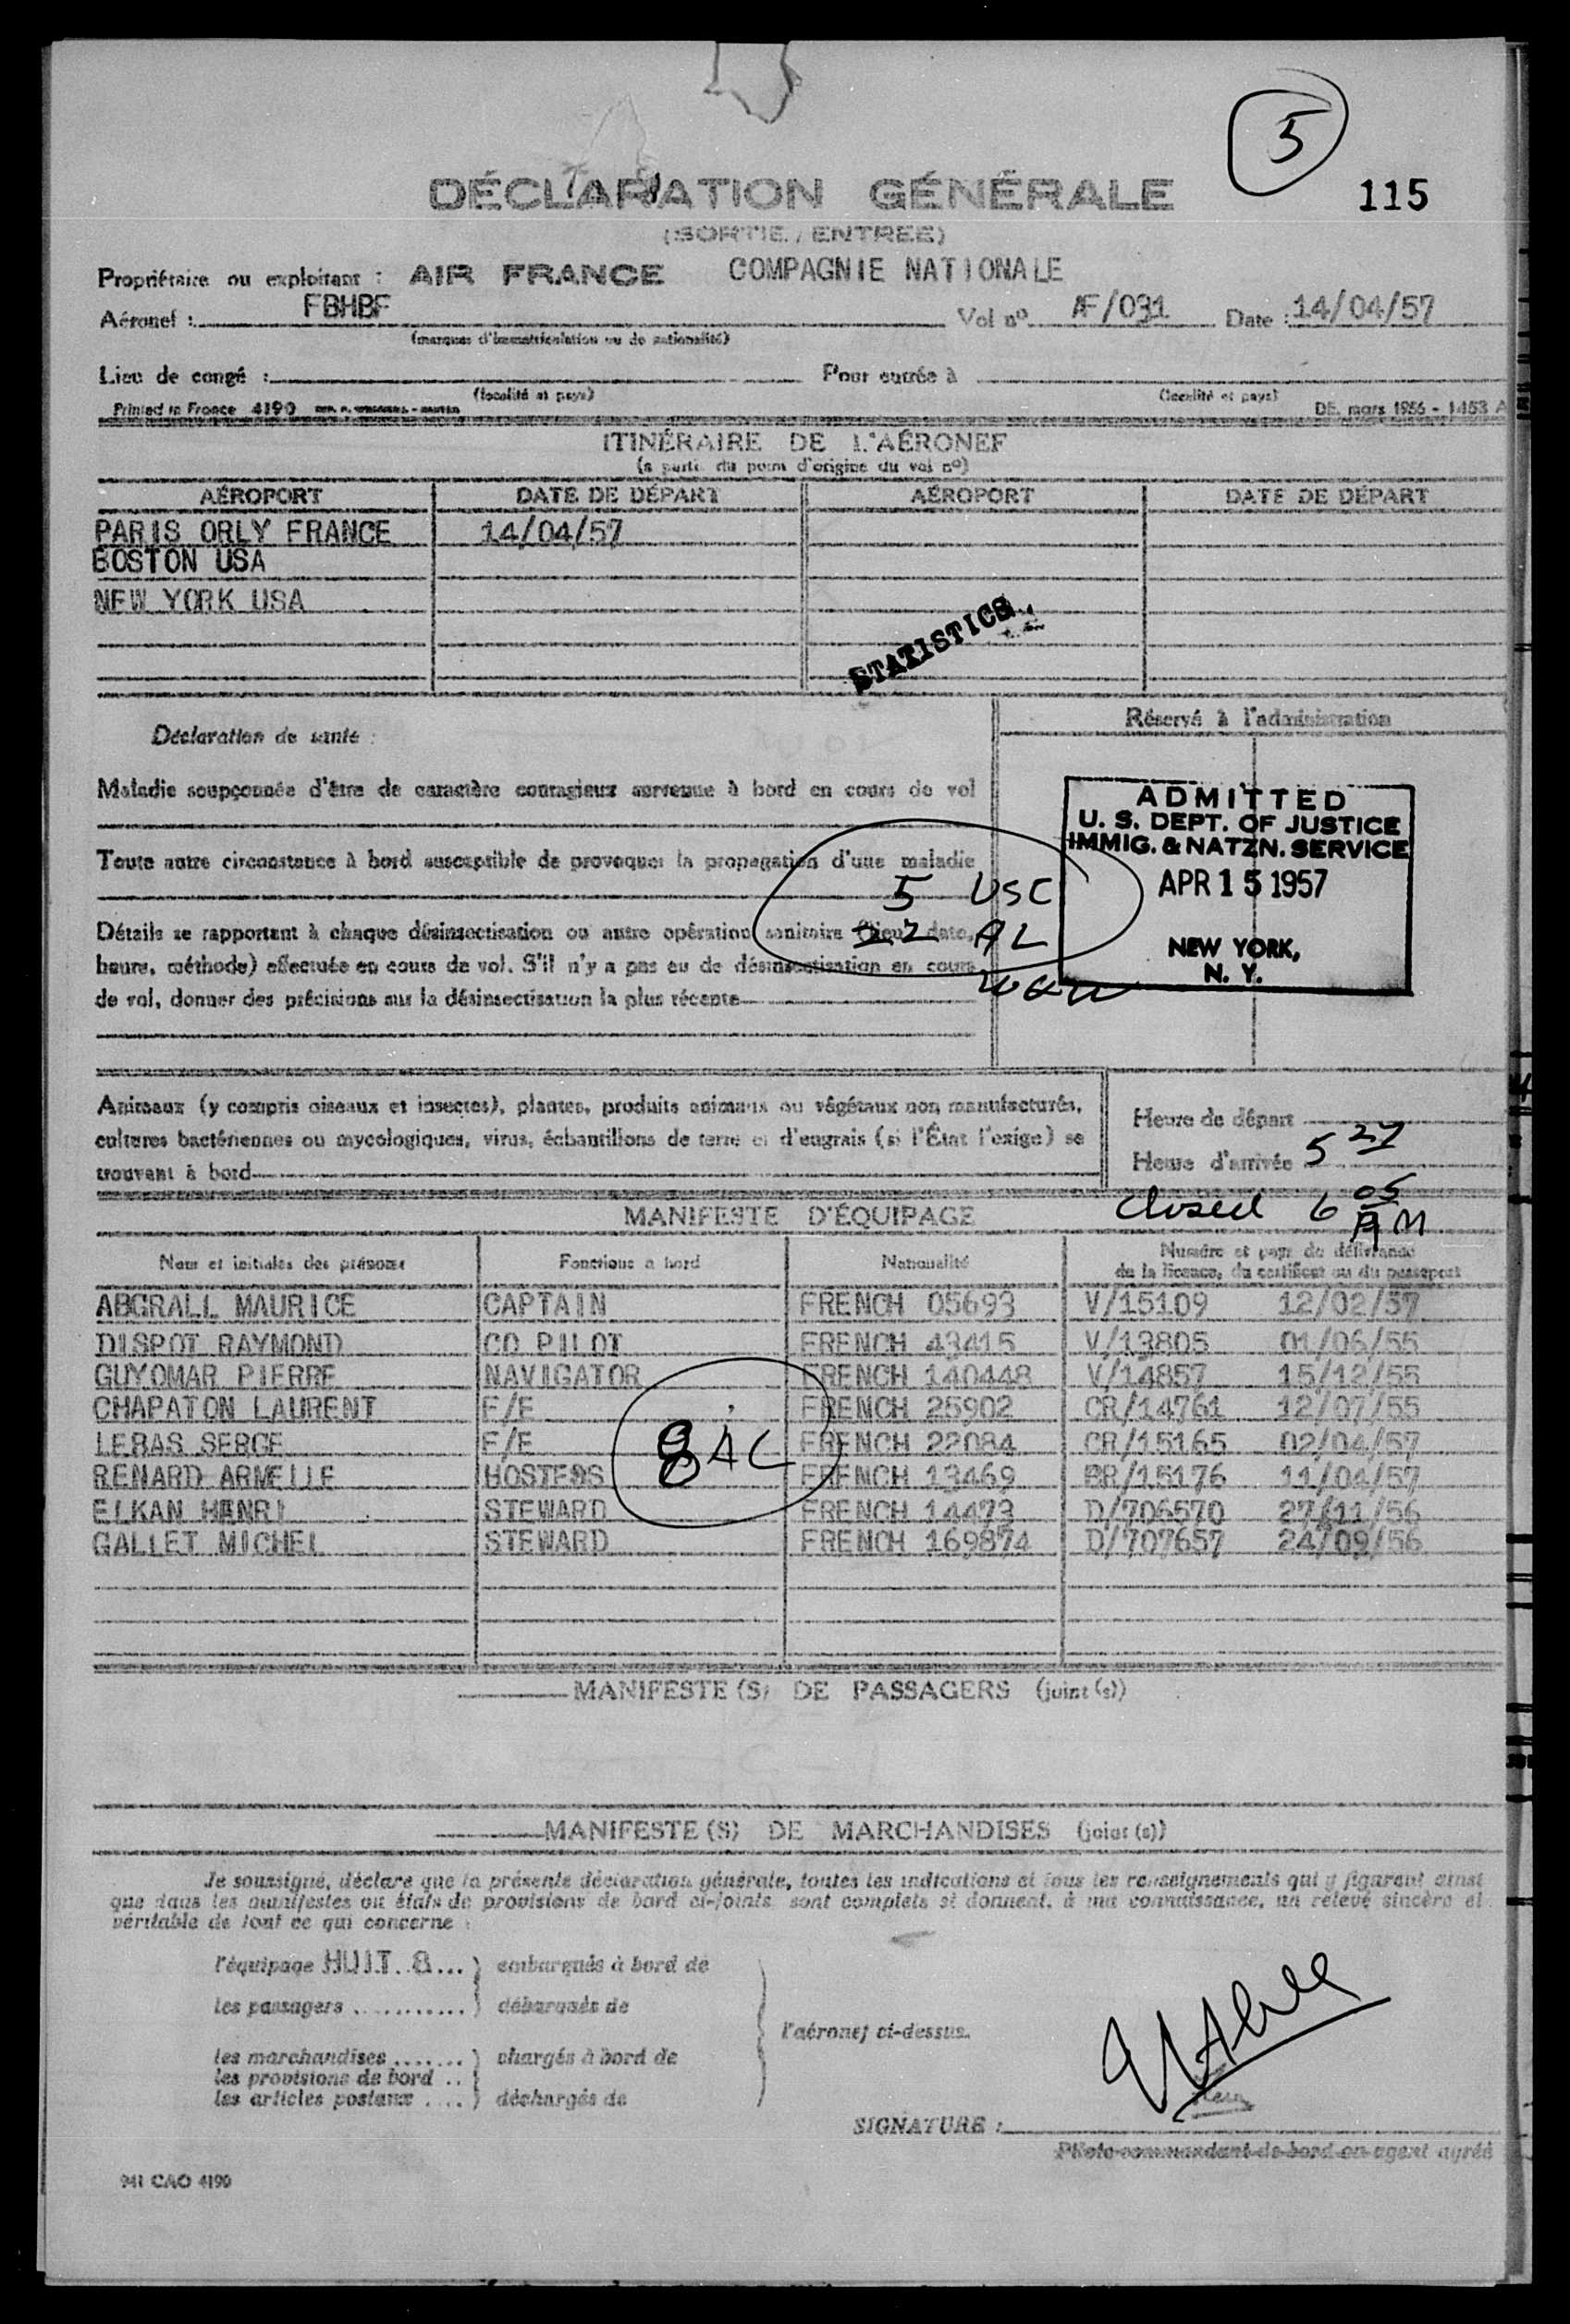 5
115
DÉCLARATION GÉNÉRALE
(SORTIE / ENTREE)
Propriétaire ou exploitant : AIR FRANCE COMPAGNIE NATIONALE
Aéronef : FBHBF Vol nº AF/031 Date : 14/04/57
(marques d'immatriculation ou de nationalité)
Lieu de congé : Pour entrée à
(localité et pays) (localité et pays)
Printed in France 4190 DE. mars 1956 - 1453 A
ITINÉRAIRE DE L'AÉRONEF
(a partir du point d'origine du vol nº)
AÉROPORT DATE DE DÉPART AÉROPORT DATE DE DÉPART
PARIS ORLY FRANCE 14/04/57
BOSTON USA
NEW YORK USA
STATISTICS
Réservé à l'administration
Déclaration de santé :
Maladie soupçonnée d'être de caractère contagieux survenue à bord en cours de vol
ADMITTED
U. S. DEPT. OF JUSTICE
IMMIG. & NATZN. SERVICE
APR 15 1957
NEW YORK,
N. Y.
Toute autre circonstance à bord susceptible de provoquer la propagation d'une maladie
5 USC
22 AL
Détails se rapportant à chaque désinsectisation ou autre opération sanitaire (lieu, date,
heure, méthode) effectuée en cours de vol. S'il n'y a pas eu de désinsectisation en cours
de vol, donner des précisions sur la désinsectisation la plus récente
Animaux (y compris oiseaux et insectes), plantes, produits animaux ou végétaux non manufacturés,
cultures bactériennes ou mycologiques, virus, échantillons de terre et d'engrais (si l'État l'exige) se
trouvant à bord
Heure de départ
Heure d'arrivée 5 27
closed 6 05 AM
MANIFESTE D'ÉQUIPAGE
Nom et initiales des prénoms Fonctions a bord Nationalité Numéro et pays de délivrance
de la licence, du certificat ou du passeport
ABGRALL MAURICE CAPTAIN FRENCH 05693 V/15109 12/02/57
DISPOT RAYMOND CO PILOT FRENCH 43415 V/13805 01/06/55
GUYOMAR PIERRE NAVIGATOR FRENCH 140448 V/14857 15/12/55
CHAPATON LAURENT F/E FRENCH 25902 CR/14761 12/07/55
LERAS SERGE F/E FRENCH 22084 CR/15165 02/04/57
RENARD ARMELLE HOSTESS FRENCH 13469 BR/15176 11/04/57
ELKAN HENRI STEWARD FRENCH 14473 D/706570 27/11/56
GALLET MICHEL STEWARD FRENCH 169874 D/707657 24/09/56
8 AL
MANIFESTE (S) DE PASSAGERS (joint (s))
MANIFESTE (S) DE MARCHANDISES (joint (s))
Je soussigné, déclare que la présente déclaration générale, toutes les indications et tous les renseignements qui y figurent ainsi
que dans les manifestes ou états de provisions de bord ci-joints sont complets et donnent, à ma connaissance, un relevé sincère et
véritable de tout ce qui concerne :
l'équipage HUIT 8 ... ) embarqués à bord de
les passagers ........... ) débarqués de
l'aéronef ci-dessus.
les marchandises ....... ) chargés à bord de
les provisions de bord ..
les articles postaux .... ) déchargés de
SIGNATURE :
Pilote commandant de bord ou agent agréé
941 CAO 4190